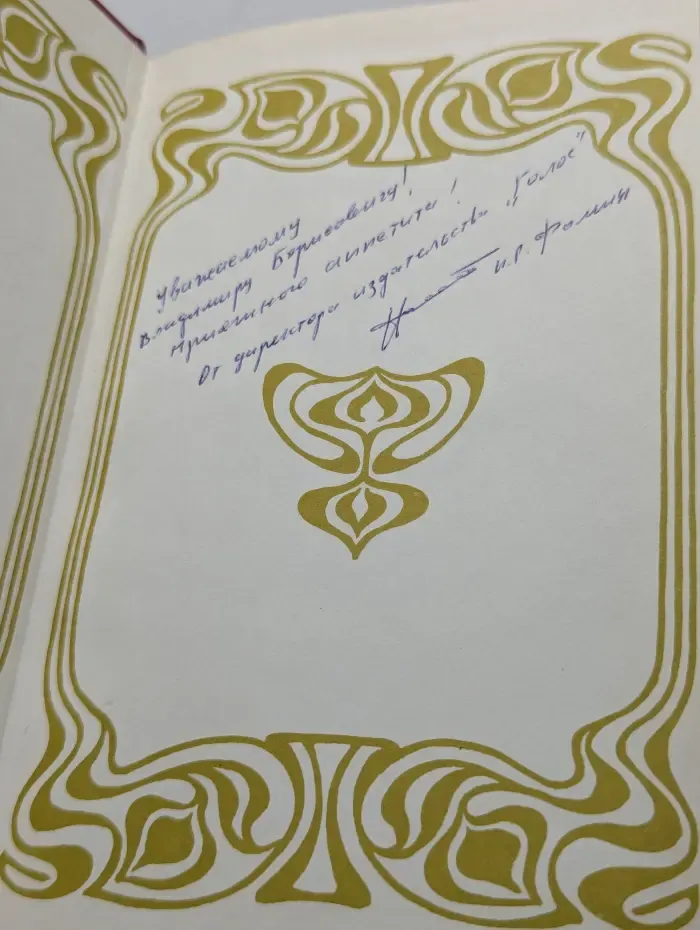 Уважаемому
Владимиру Борисовичу!
Приятного аппетита!
От директора издательства "Голос"
И.Р. Фомин